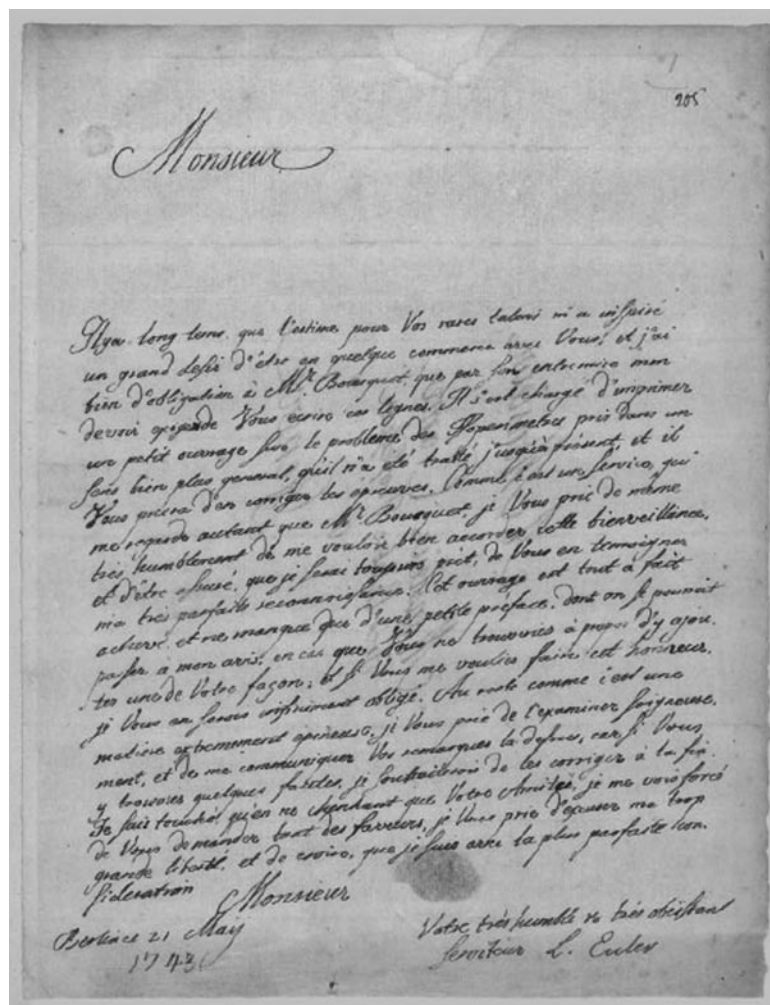 205
Monsieur
Il y a long tems que l'estime pour Vos rares talens m'a inspiré
un grand desir d'être en quelque commerce avec Vous, et j'ai
bien d'obligation à Mr. Bousquet, que par son entremise mon
devoir Vous écrire ces lignes. Il s'est chargé d'imprimer
un petit ouvrage sur le probleme des Isoperimetres pris dans un
sens bien plus general, qu'il n'a été traité jusqu'à présent, et il
Vous priera d'en corriger les épreuves. Comme c'est un service, qui
me regarde autant que Mr. Bousquet, je Vous prie de même
très humblement de me vouloir bien accorder cette bienveillance,
et d'être assuré, que je serai toujours prêt, de Vous en temoigner
ma très parfaite reconnoissance. Cet ouvrage est tout à fait
achevé, et ne manque que d'une petite préface, dont on se pourroit
passer à mon avis, en cas que Vous ne trouviés à propos d'y ajou-
ter une de Votre façon; et si Vous me vouliés faire cet honneur,
je Vous en serois infiniment obligé. Au reste comme c'est une
matiere extremement epineuse, je Vous prie de l'examiner soigneuse-
ment, et de me communiquer Vos remarques la dessus, car si Vous
y trouviés quelques fautes, je souhaiterois de les corriger à la fin.
Je suis touché, qu'en ne cherchant que Votre Amitié, je me vois forcé
de Vous demander tant des faveurs, je Vous prie d'excuser ma trop
grande liberté, et de croire, que je suis avec la plus parfaite con-
sideration
Monsieur
Berlin ce 21 Maij
1743
Votre très humble et très obeissant
serviteur L. Euler